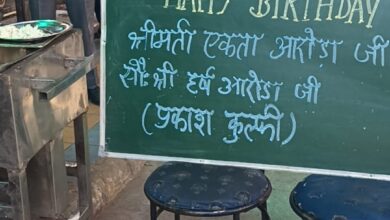 HAPPY BIRTHDAY
श्रीमती एकता अरोड़ा जी
सौ: श्री हर्ष आरोडा जी
(प्रकाश कुल्फी)